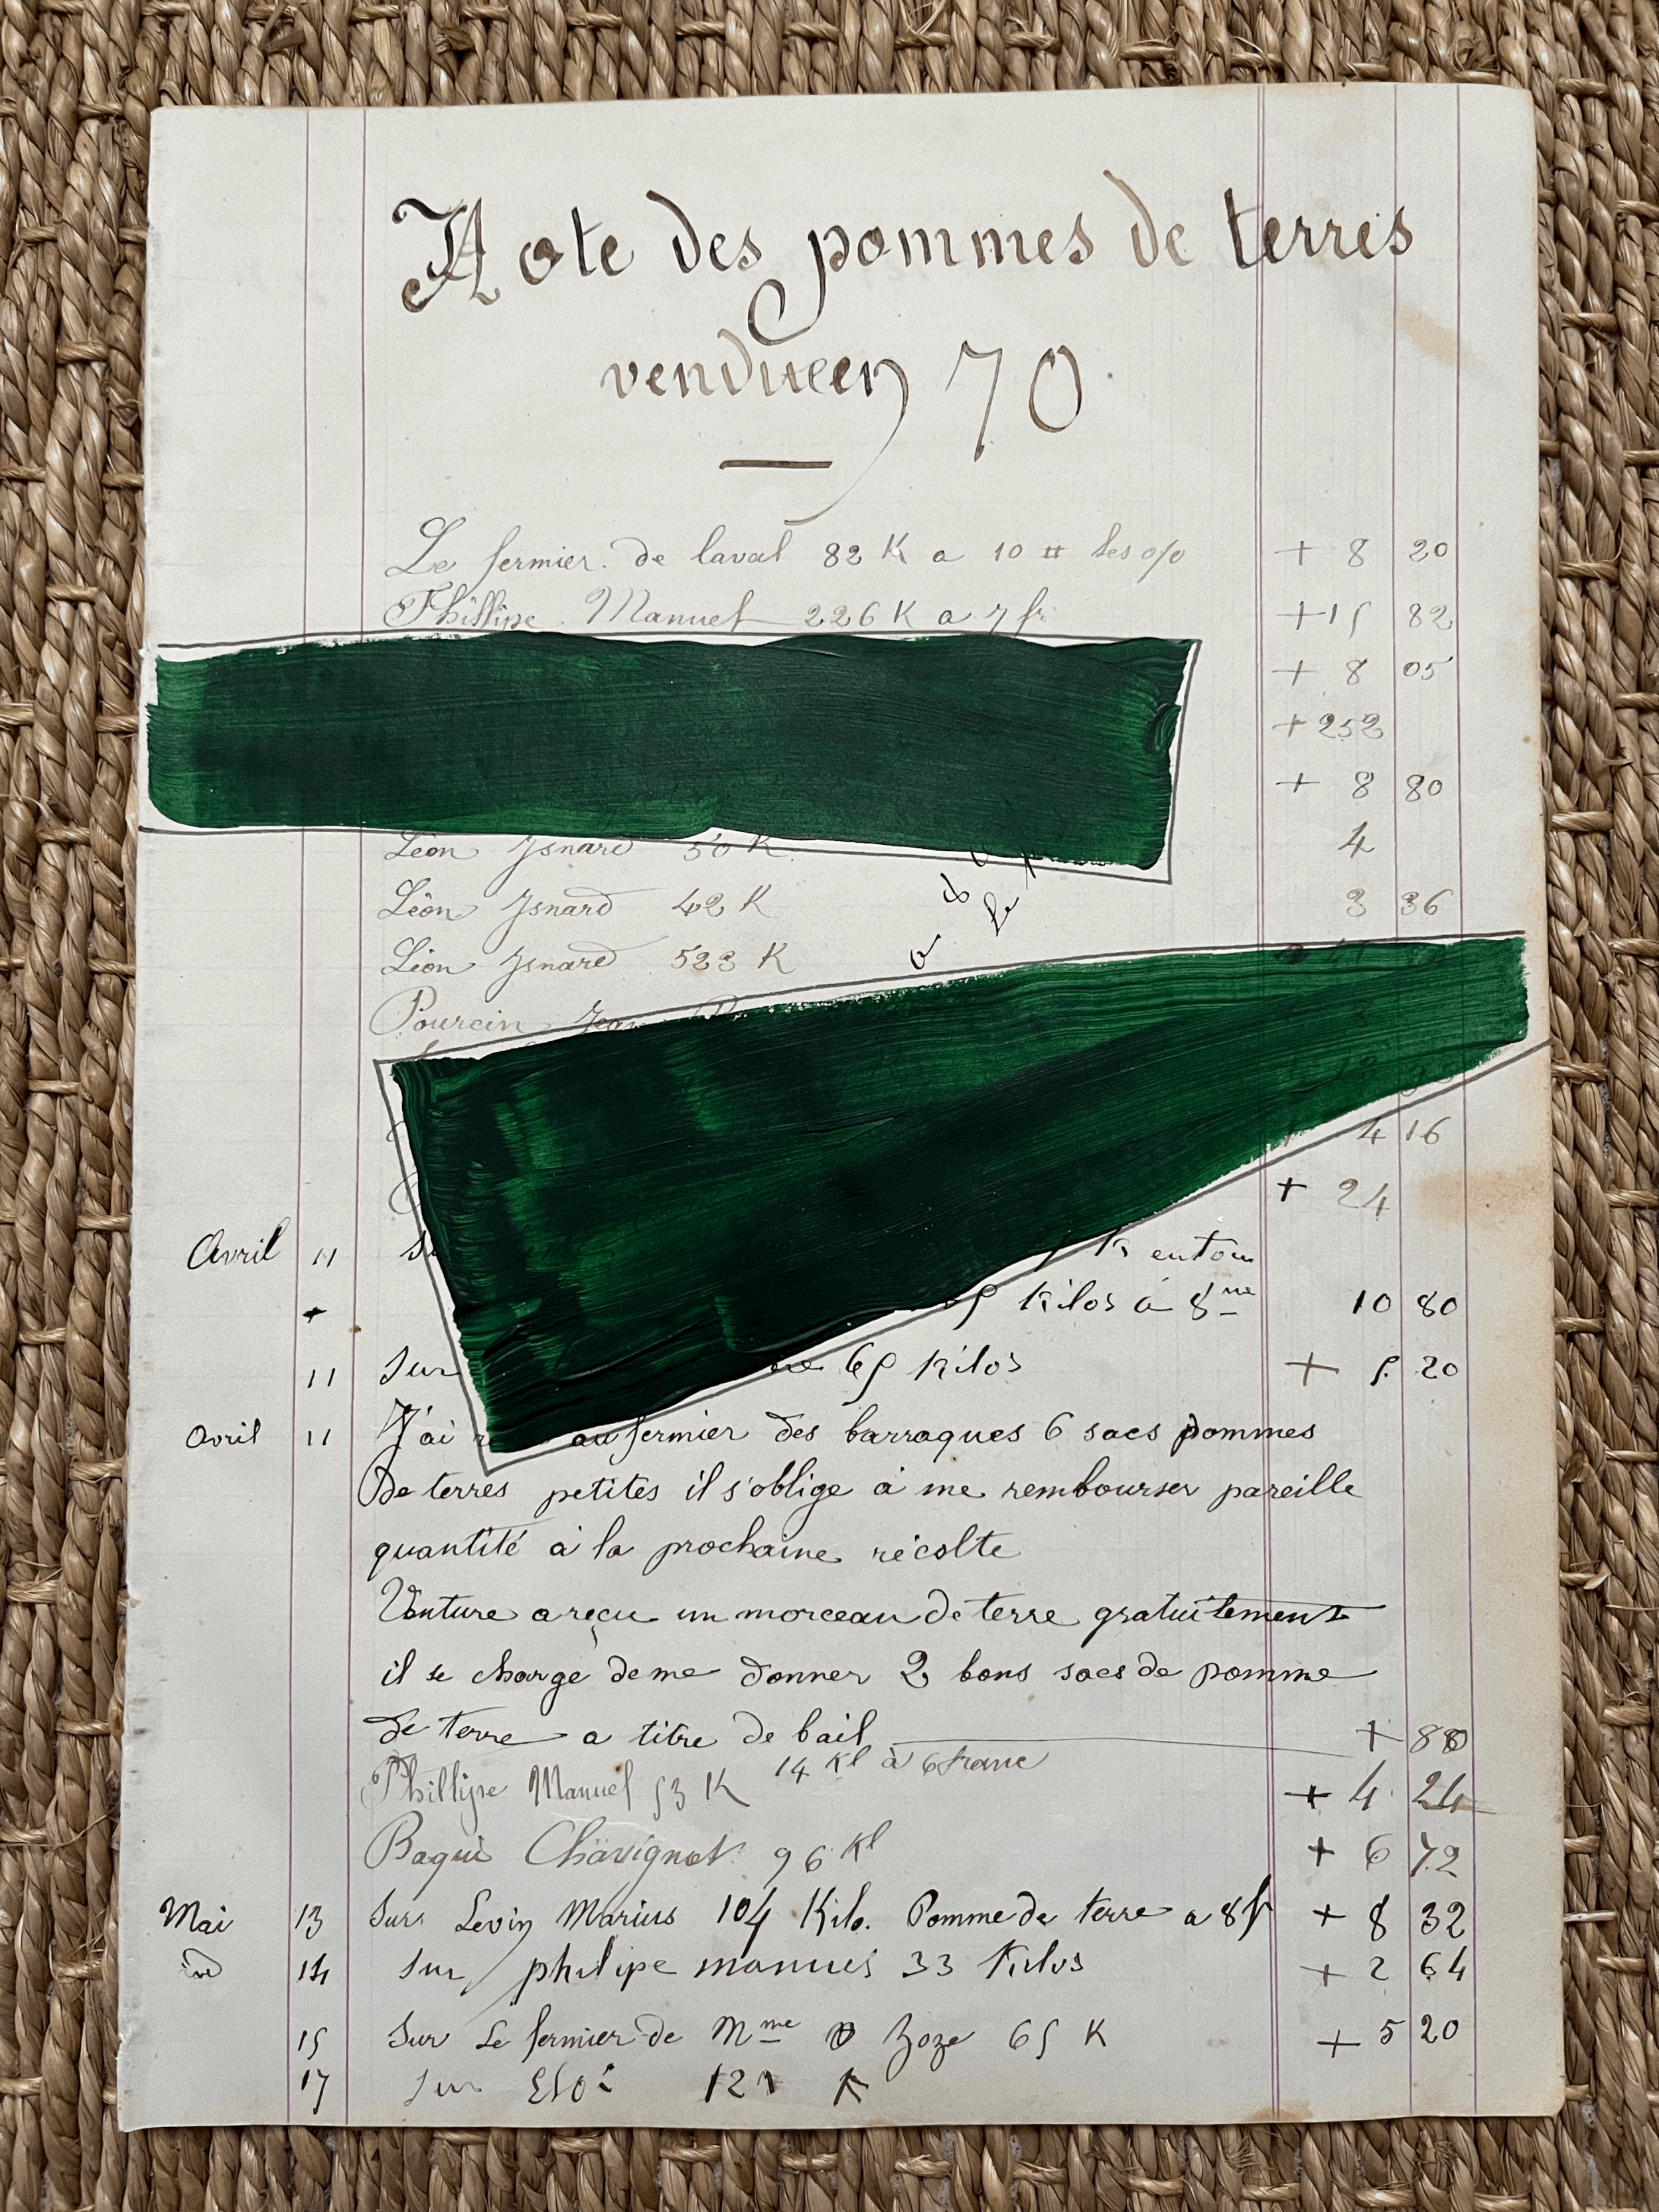 Note des pommes de terres
vendueen 70
Le fermier de laval 82 K a 10 # les o/o + 8 20
Phillipe Manuel 226 K a 7 fr + 15 82
+ 8 05
+ 252
+ 8 80
Léon Jsnard 50 K 4
Léon Jsnard 42 K 3 36
Léon Jsnard 523 K a 8 le
Pourcin Jean
4 16
+ 24
Avril 11 K entou
5 Kilos á 8 10 80
11 Sur 65 Kilos + 5 20
Avril 11 J'ai au fermier des barraques 6 sacs pommes
De terres petites il s'oblige à me rembourser pareille
quantité à la prochaine récolte
Venture a reçu un morceau de terre gratuitement
il se charge de me donner 2 bons sacs de pomme
de terre a titre de bail + 88
14 Kl à 6 franc
Phillipe Manuel 53 K + 4 24
Baqui Chavignot 96 Kl + 6 72
Mai 13 Sur Levin Marius 104 Kilo. Pomme de terre a 8f + 8 32
id 14 sur philipe manuel 33 Kilos + 2 64
15 Sur Le fermier de Mme Zoze 65 K + 5 20
17 sur K